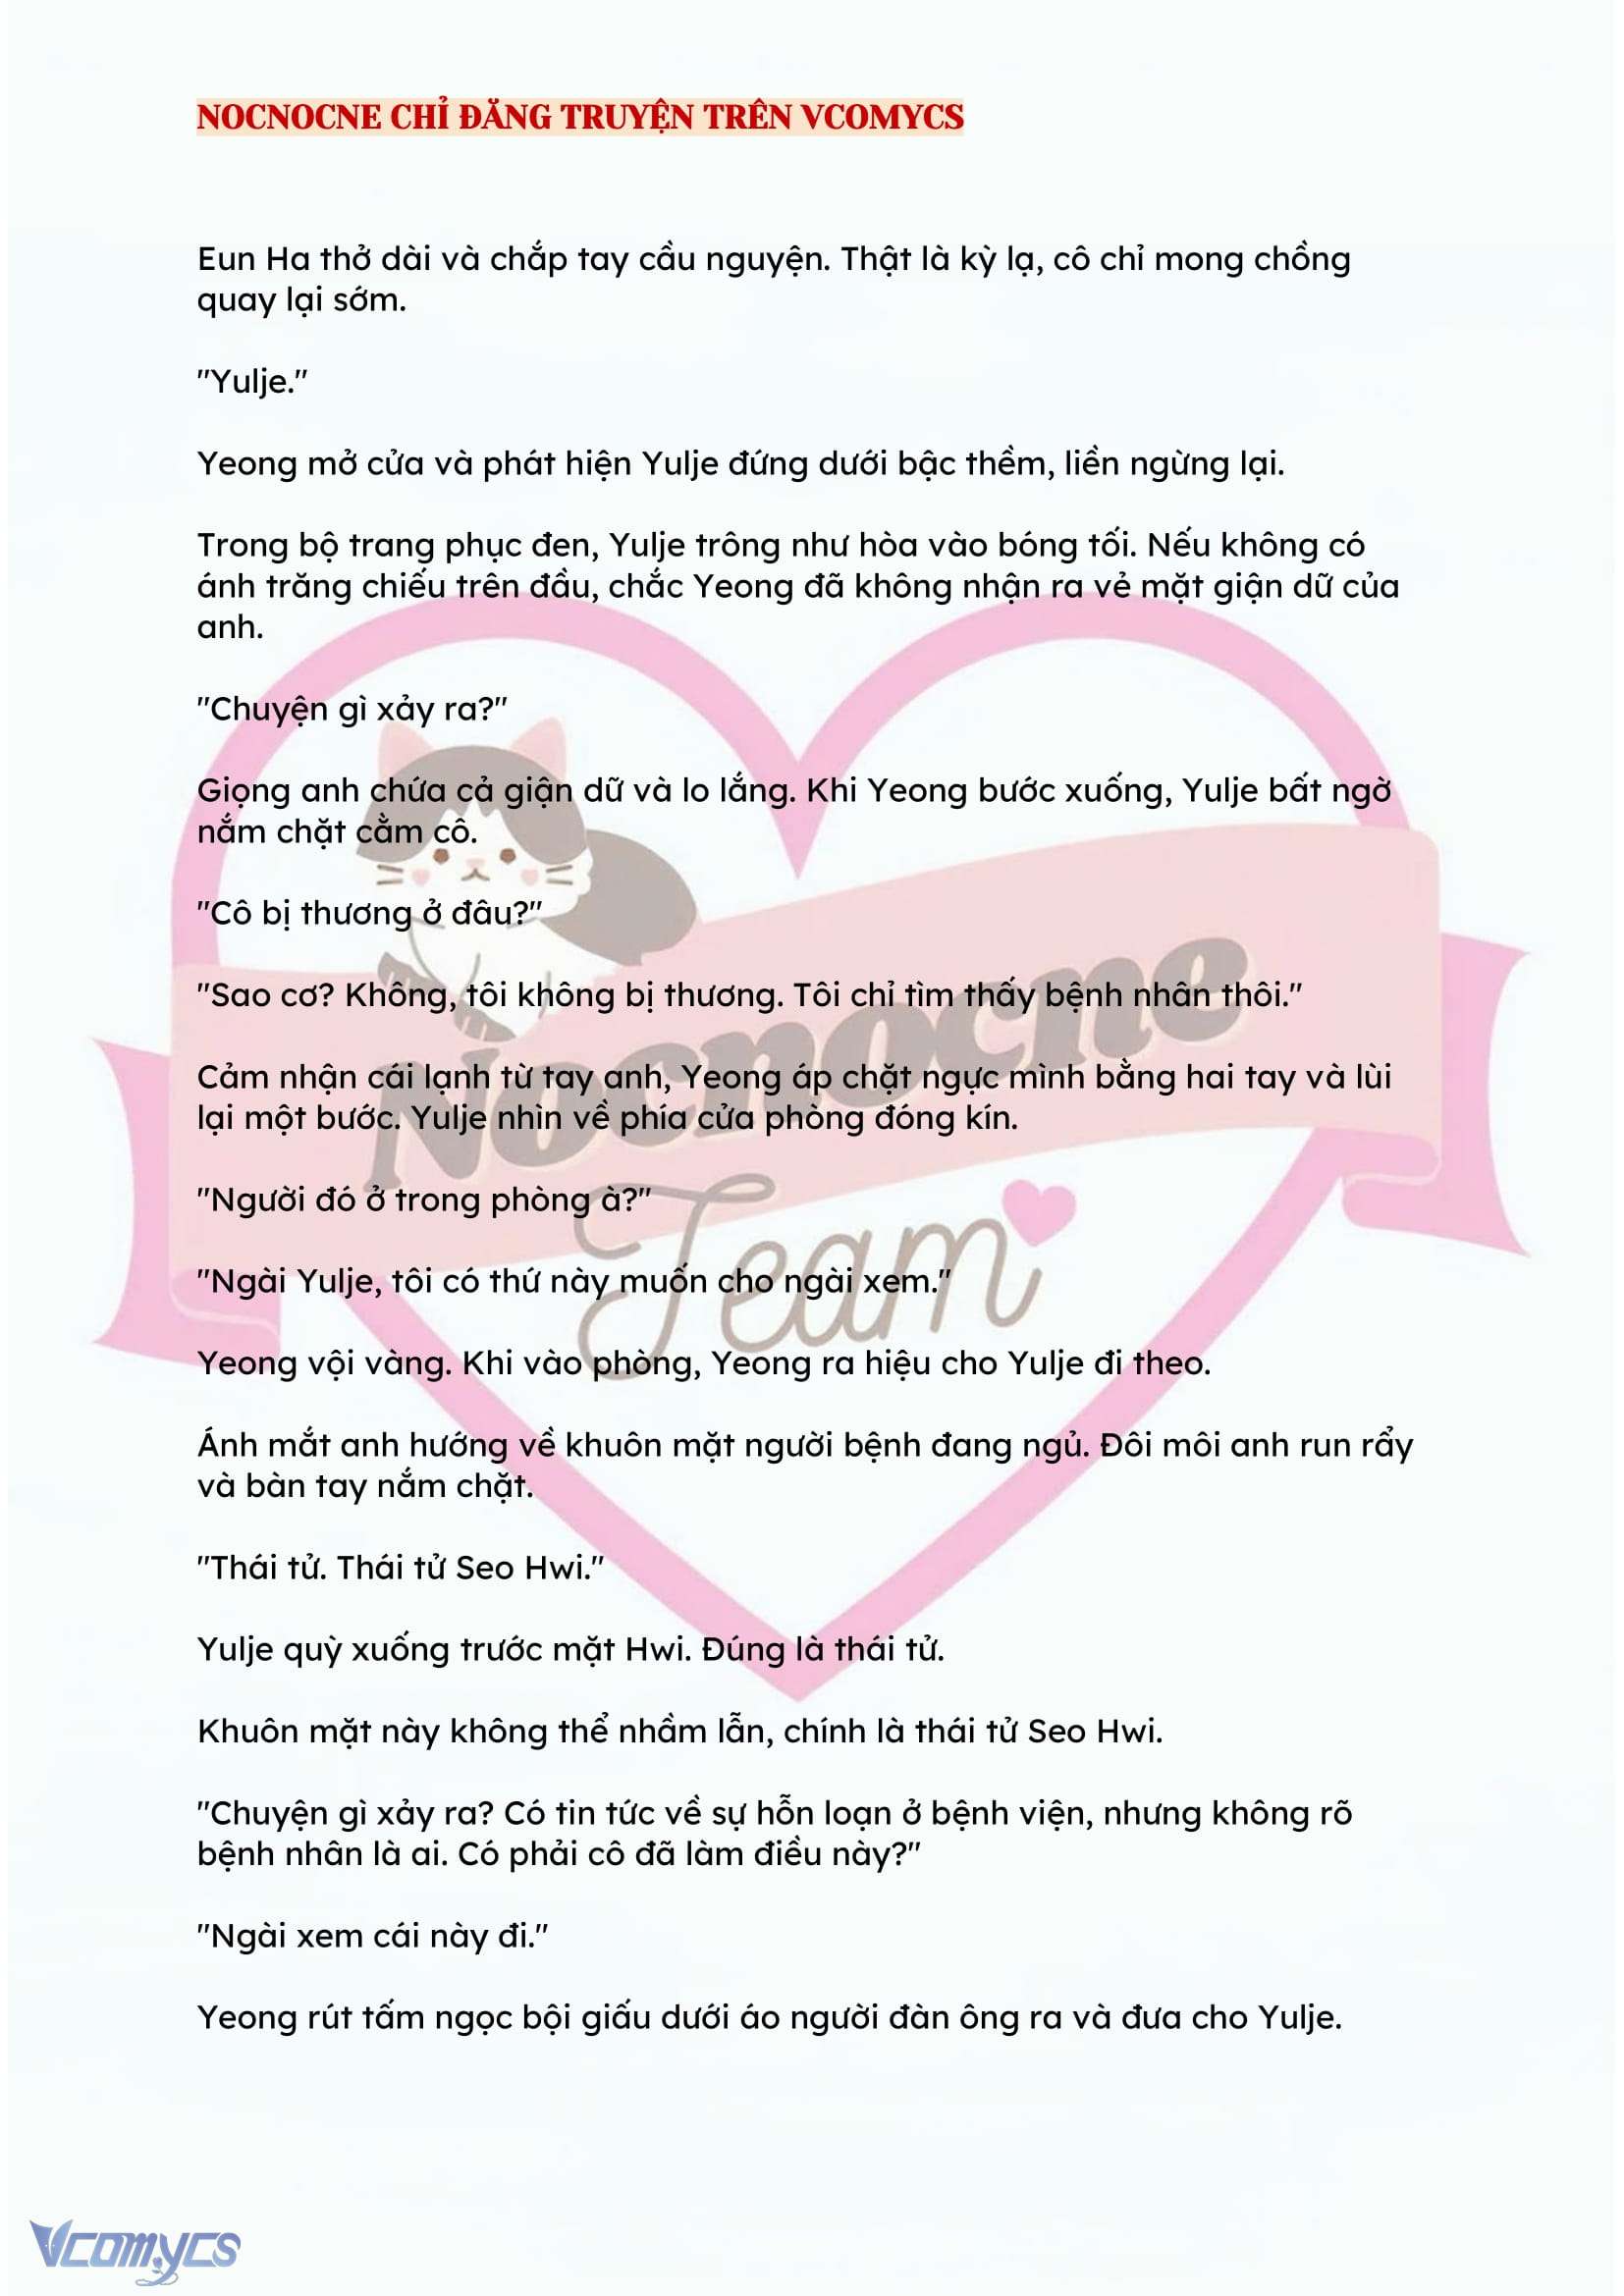 NOCNOCNE CHỈ ĐĂNG TRUYỆN TRÊN VCOMYCS
Eun Ha thở dài và chắp tay cầu nguyện. Thật là kỳ lạ, cô chỉ mong chồng
quay lại sớm.
"Yulje."
Yeong mở cửa và phát hiện Yulje đứng dưới bậc thềm, liền ngừng lại.
Trong bộ trang phục đen, Yulje trông như hòa vào bóng tối. Nếu không có
ánh trăng chiếu trên đầu, chắc Yeong đã không nhận ra vẻ mặt giận dữ của
anh.
"Chuyện gì xảy ra?"
Giọng anh chứa cả giận dữ và lo lắng. Khi Yeong bước xuống, Yulje bất ngờ
nắm chặt cằm cô.
"Cô bị thương ở đâu?"
"Sao cơ? Không, tôi không bị thương. Tôi chỉ tìm thấy bệnh nhân thôi."
Cảm nhận cái lạnh từ tay anh, Yeong áp chặt ngực mình bằng hai tay và lùi
lại một bước. Yulje nhìn về phía cửa phòng đóng kín.
"Người đó ở trong phòng à?"
"Ngài Yulje, tôi có thứ này muốn cho ngài xem."
Yeong vội vàng. Khi vào phòng, Yeong ra hiệu cho Yulje đi theo.
Ánh mắt anh hướng về khuôn mặt người bệnh đang ngủ. Đôi môi anh run rẩy
và bàn tay nắm chặt.
"Thái tử. Thái tử Seo Hwi."
Yulje quỳ xuống trước mặt Hwi. Đúng là thái tử.
Khuôn mặt này không thể nhầm lẫn, chính là thái tử Seo Hwi.
"Chuyện gì xảy ra? Có tin tức về sự hỗn loạn ở bệnh viện, nhưng không rõ
bệnh nhân là ai. Có phải cô đã làm điều này?"
"Ngài xem cái này đi."
Yeong rút tấm ngọc bội giấu dưới áo người đàn ông ra và đưa cho Yulje.
Nocnocne
Team
Vcomycs